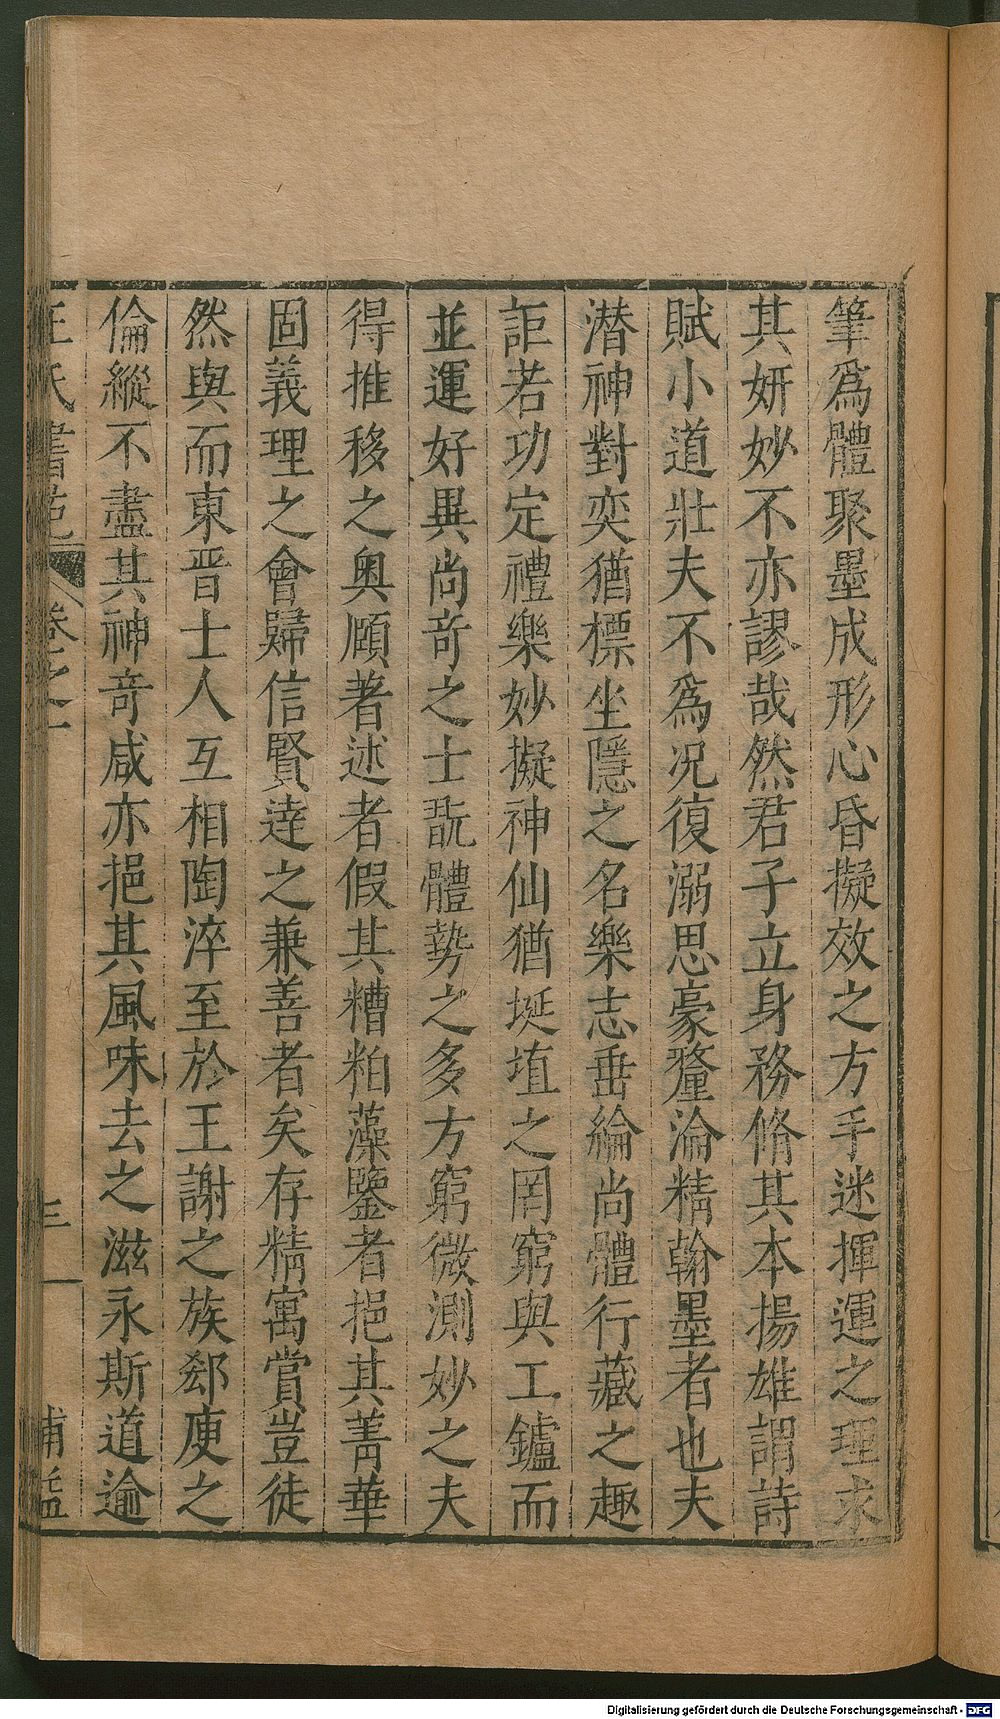 筆爲體聚墨成形心昏擬效之方手迷揮運之理求
其妍妙不亦謬哉然君子立身務脩其本揚雄謂詩
賦小道壯夫不爲况復溺思豪釐淪精翰墨者也夫
潜神對奕猶標坐隱之名樂志垂綸尚體行藏之趣
詎若功定禮樂妙擬神仙猶埏埴之罔窮與工鑪而
並運好異尚奇之士翫體勢之多方窮微測妙之夫
得推移之奥頤著述者假其糟粕藻鑒者挹其菁華
固義理之會歸信賢達之兼善者矣存精寓賞豈徒
然與而東晋士人互相陶淬至於王謝之族郄庾之
倫縱不盡其神奇咸亦挹其風味去之滋永斯道逾
王氏書苑 卷之一 三
Digitalisierung gefördert durch die Deutsche Forschungsgemeinschaft - DFG